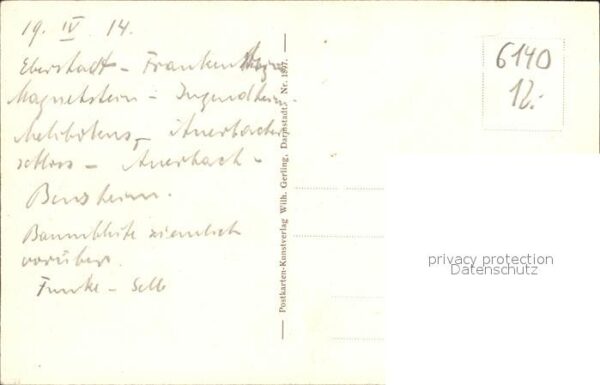 19. IV. 14.
Eberstadt - Frankenstein
Magnetstein - Jugendheim
Melibokus - Auerbacher
schloss - Auerbach -
Bensheim.
Baumblüte ziemlich
vorüber.
Funke - Selb
Postkarten-Kunstverlag Wilh. Gerling, Darmstadt. Nr.
6140
12.-
privacy protection
Datenschutz